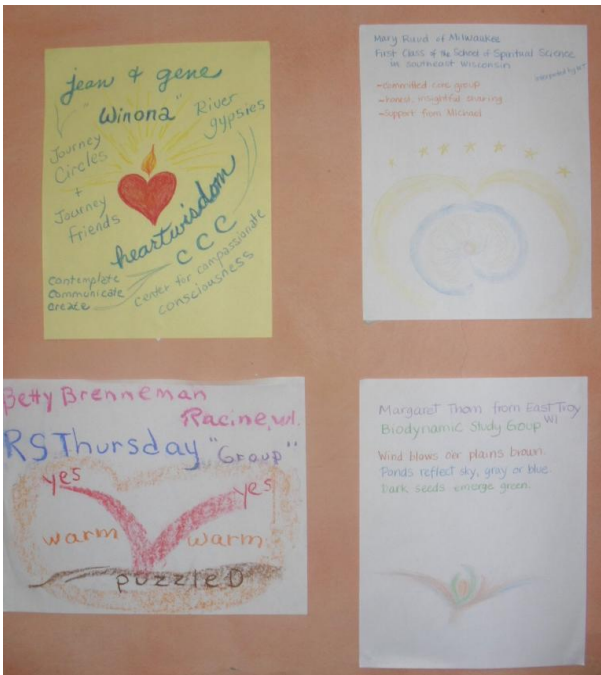 jean & gene
"Winona"
River
gypsies
Journey
Circles
+
Journey
Friends
heartwisdom
CCC
Contemplate
Communicate
create
Center for compassionate
consciousness
Mary Ruud of Milwaukee
First Class of the School of Spiritual Science
in southeast Wisconsin
-committed core group
-honest, insightful sharing
-support from Michael
Betty Brenneman
Racine, WI.
RS Thursday "Group"
yes
yes
warm
warm
puzzleD
Margaret Thom from East Troy
WI
Biodynamic Study Goup
Wind blows oer plains brown.
Ponds reflect sky, gray or blue.
Dark seeds emerge green.